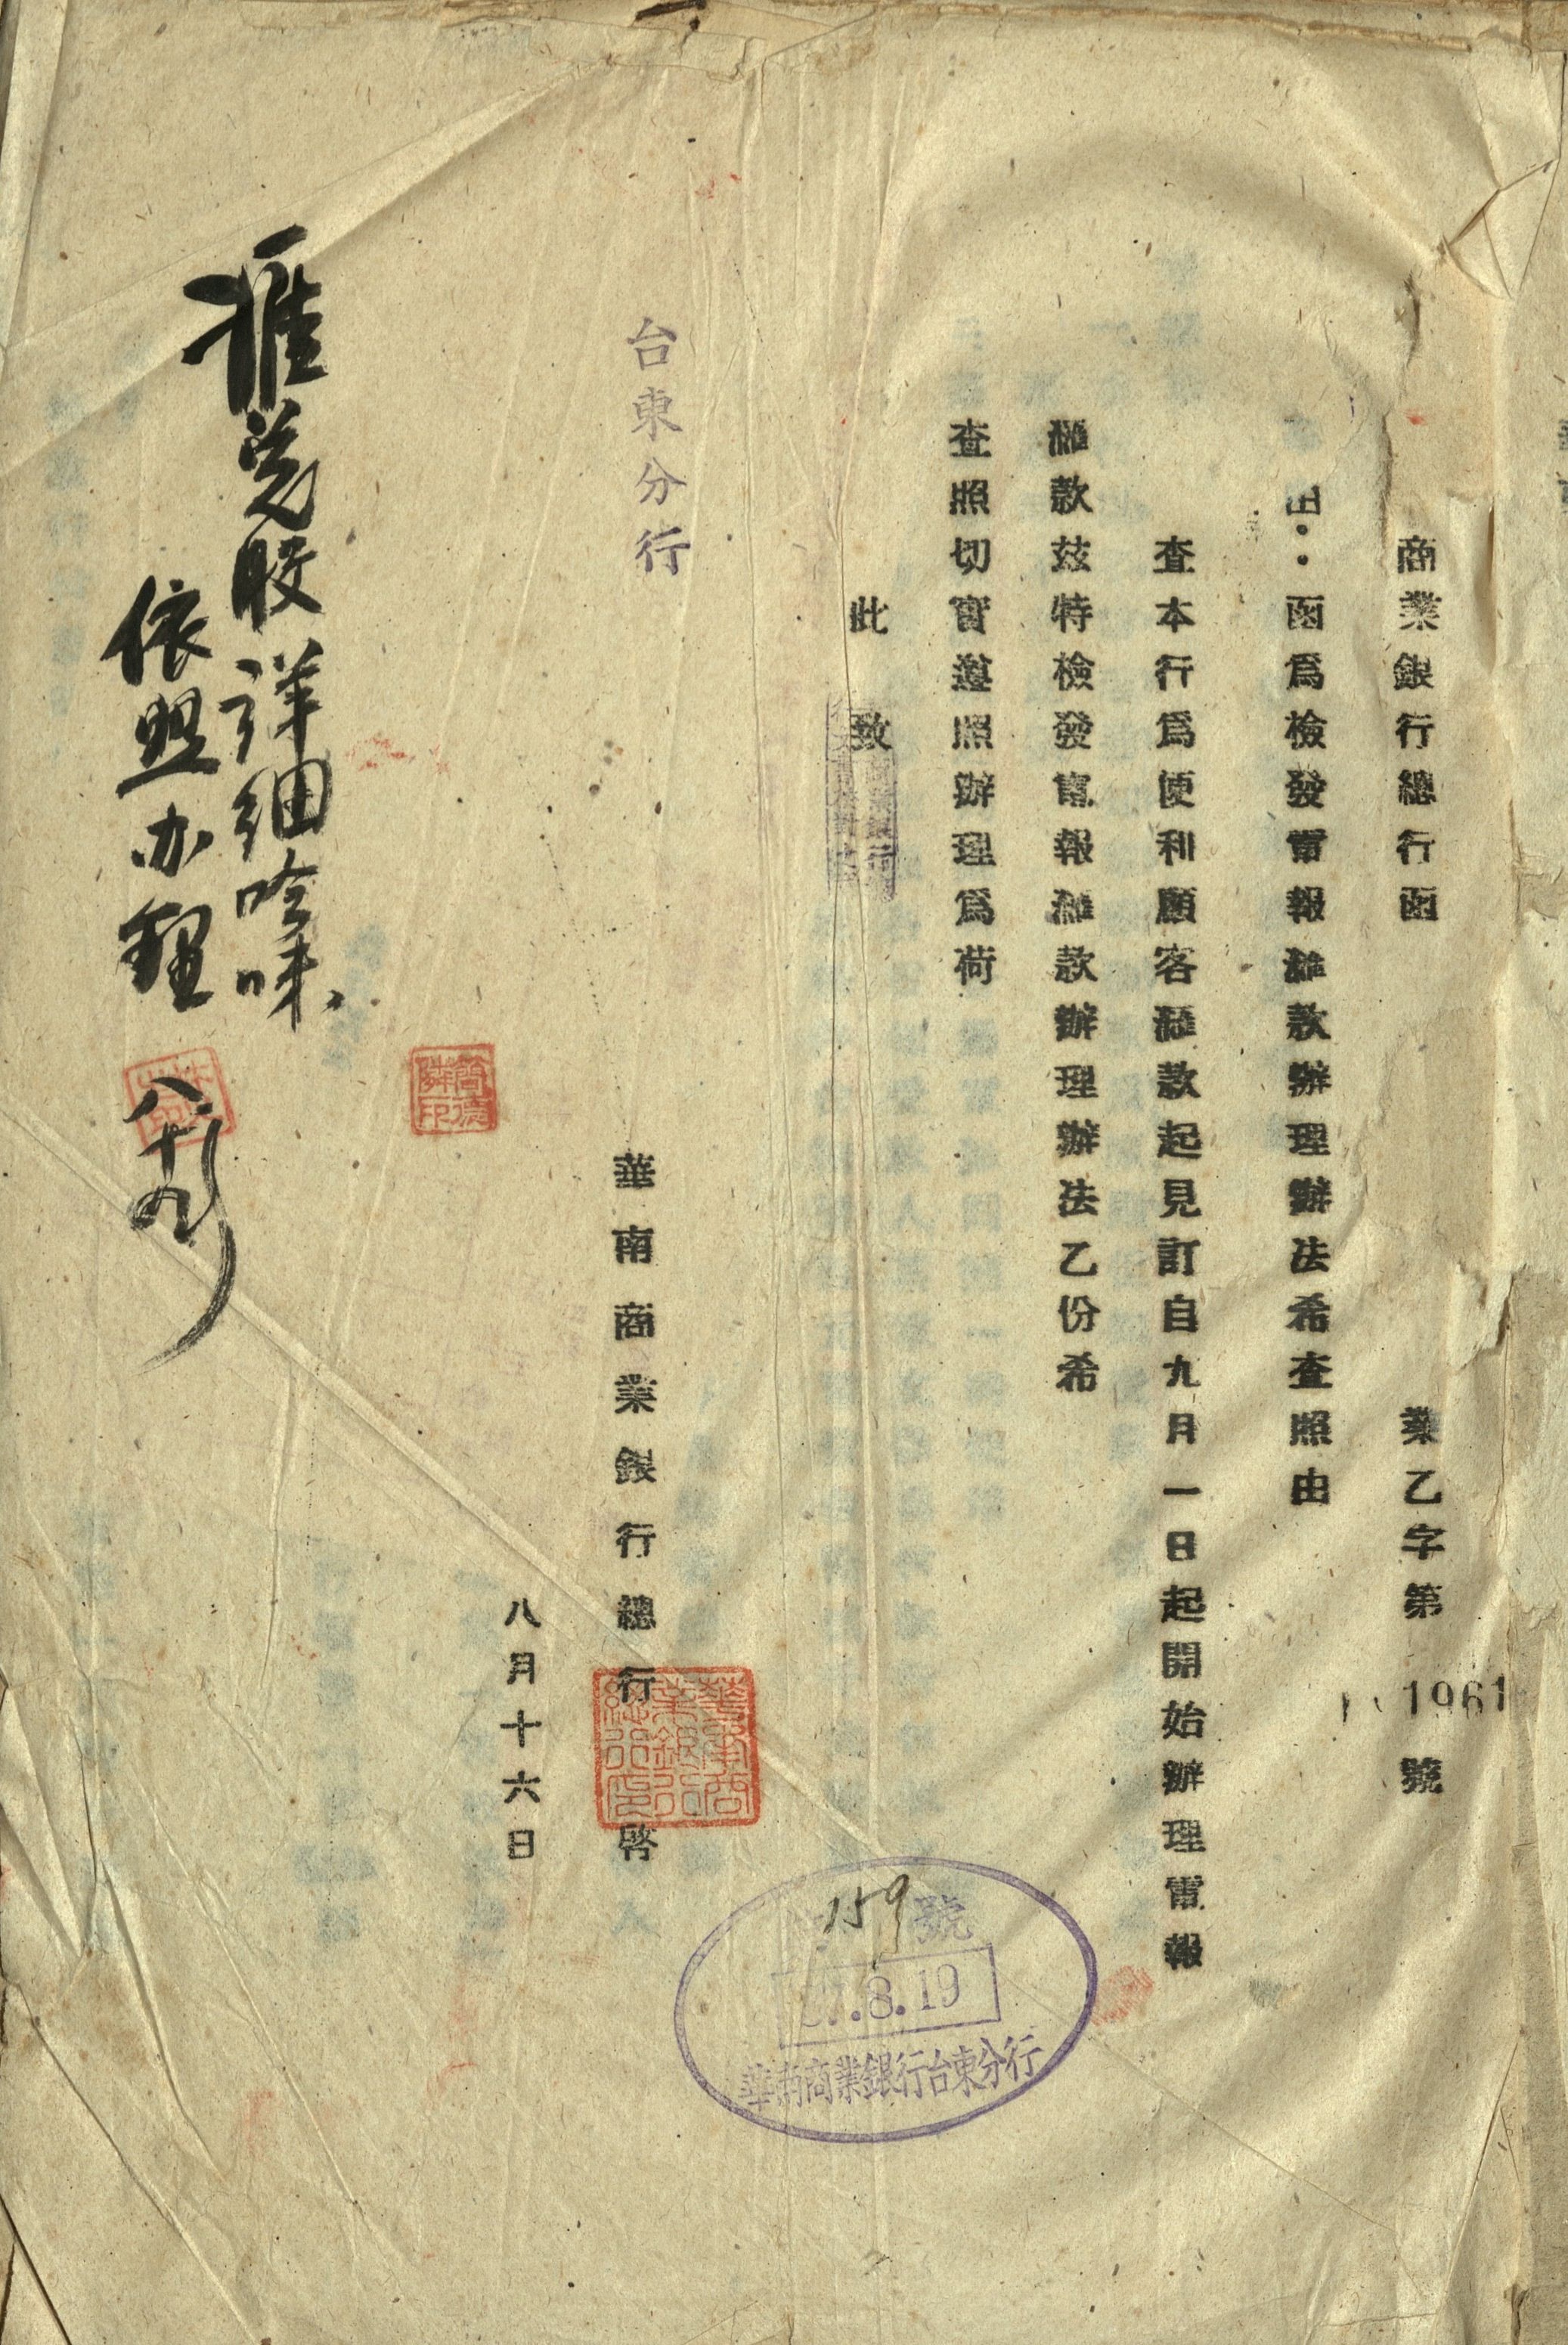 商業銀行總行函　業乙字第 1961 號
由：函爲檢發電報滙款辦理辦法希查照由
查本行爲便利顧客滙款起見訂自九月一日起開始辦理電報
滙款茲特檢發電報滙款辦理辦法乙份希
查照切實遵照辦理爲荷
此致
台東分行
華南商業銀行總行啓
華南商業銀行總行印
八月十六日
159 號
7.8.19
華南商業銀行台東分行
簡德
印
滙兌股詳細吟味、
依照办理
八